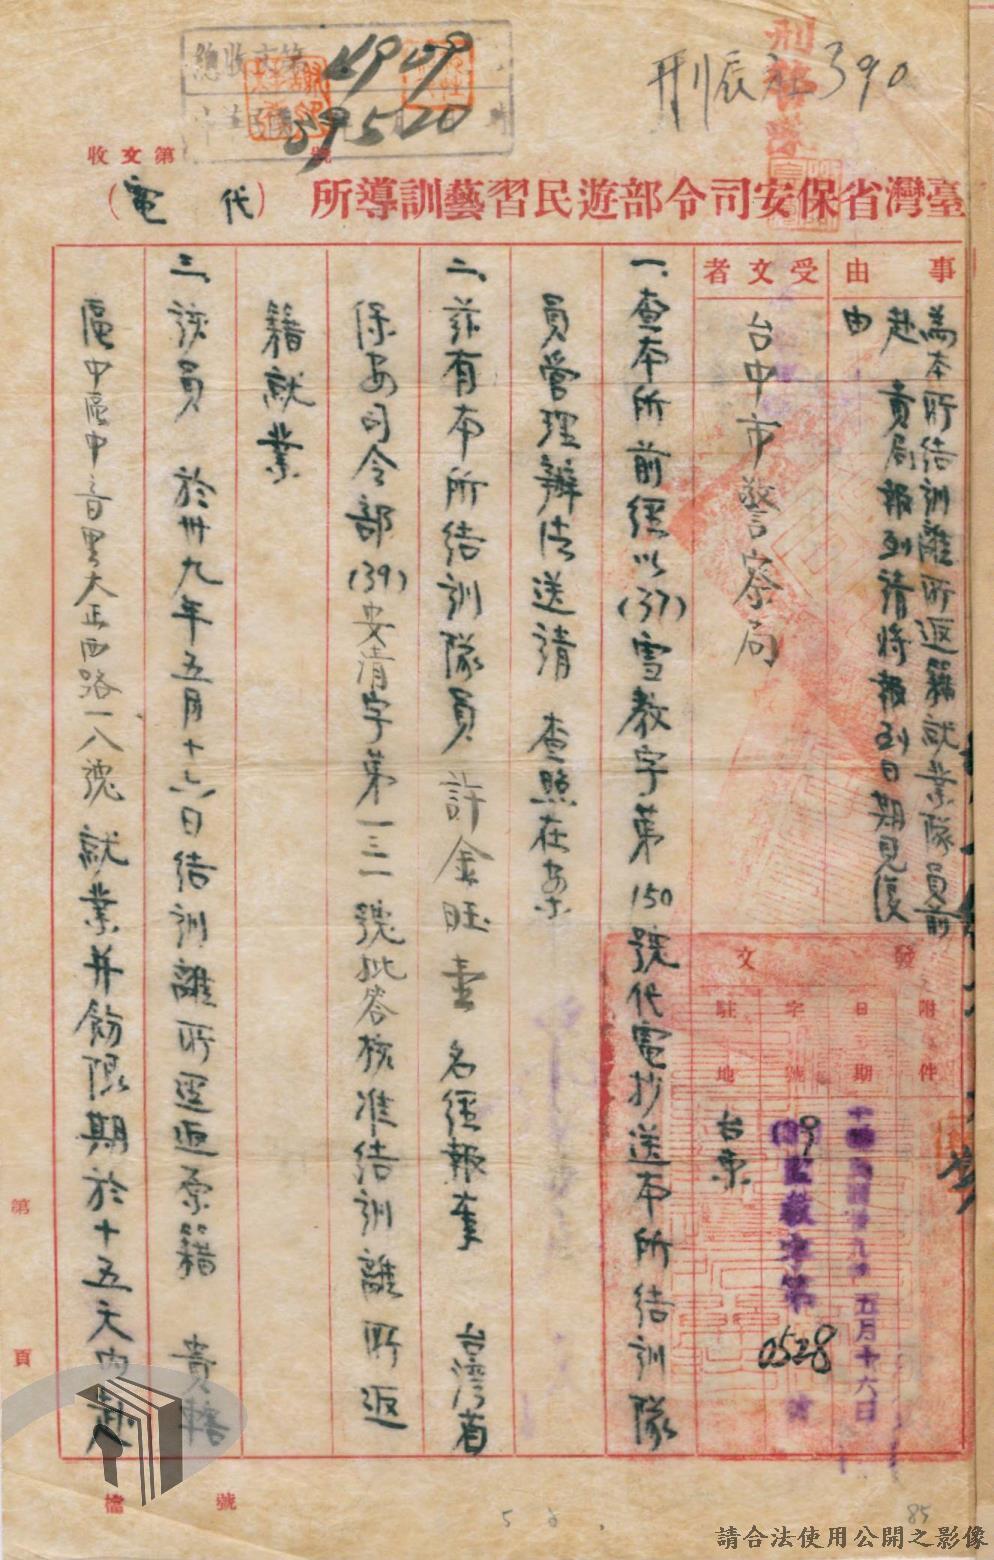 刑辰社390
總收文第4909
39 5 20
收文第 號
臺灣省保安司令部遊民習藝訓導所（代電）
事由
為本所結訓離所返籍就業隊員前
赴 貴局報到請將報到日期見復
由
受文者
台中市警察局
發文
附件
日期
中華民國卅九年五月十六日
字號
(39)監教字第0528號
駐地
台東
一、查本所前經以(37)雪教字第150號代電抄送本所結訓隊
員管理辦法送請 查照在案
二、茲有本所結訓隊員許金旺壹名經報奉 台灣省
保安司令部(39)安清字第一三一號批答核准結訓離所返
籍就業
三、該員 於卅九年五月十六日結訓離所運返原籍 貴轄
區中區中音里大正西路一八號就業并飭限期於十五天內赴
第 頁
檔 號
56
85
請合法使用公開之影像